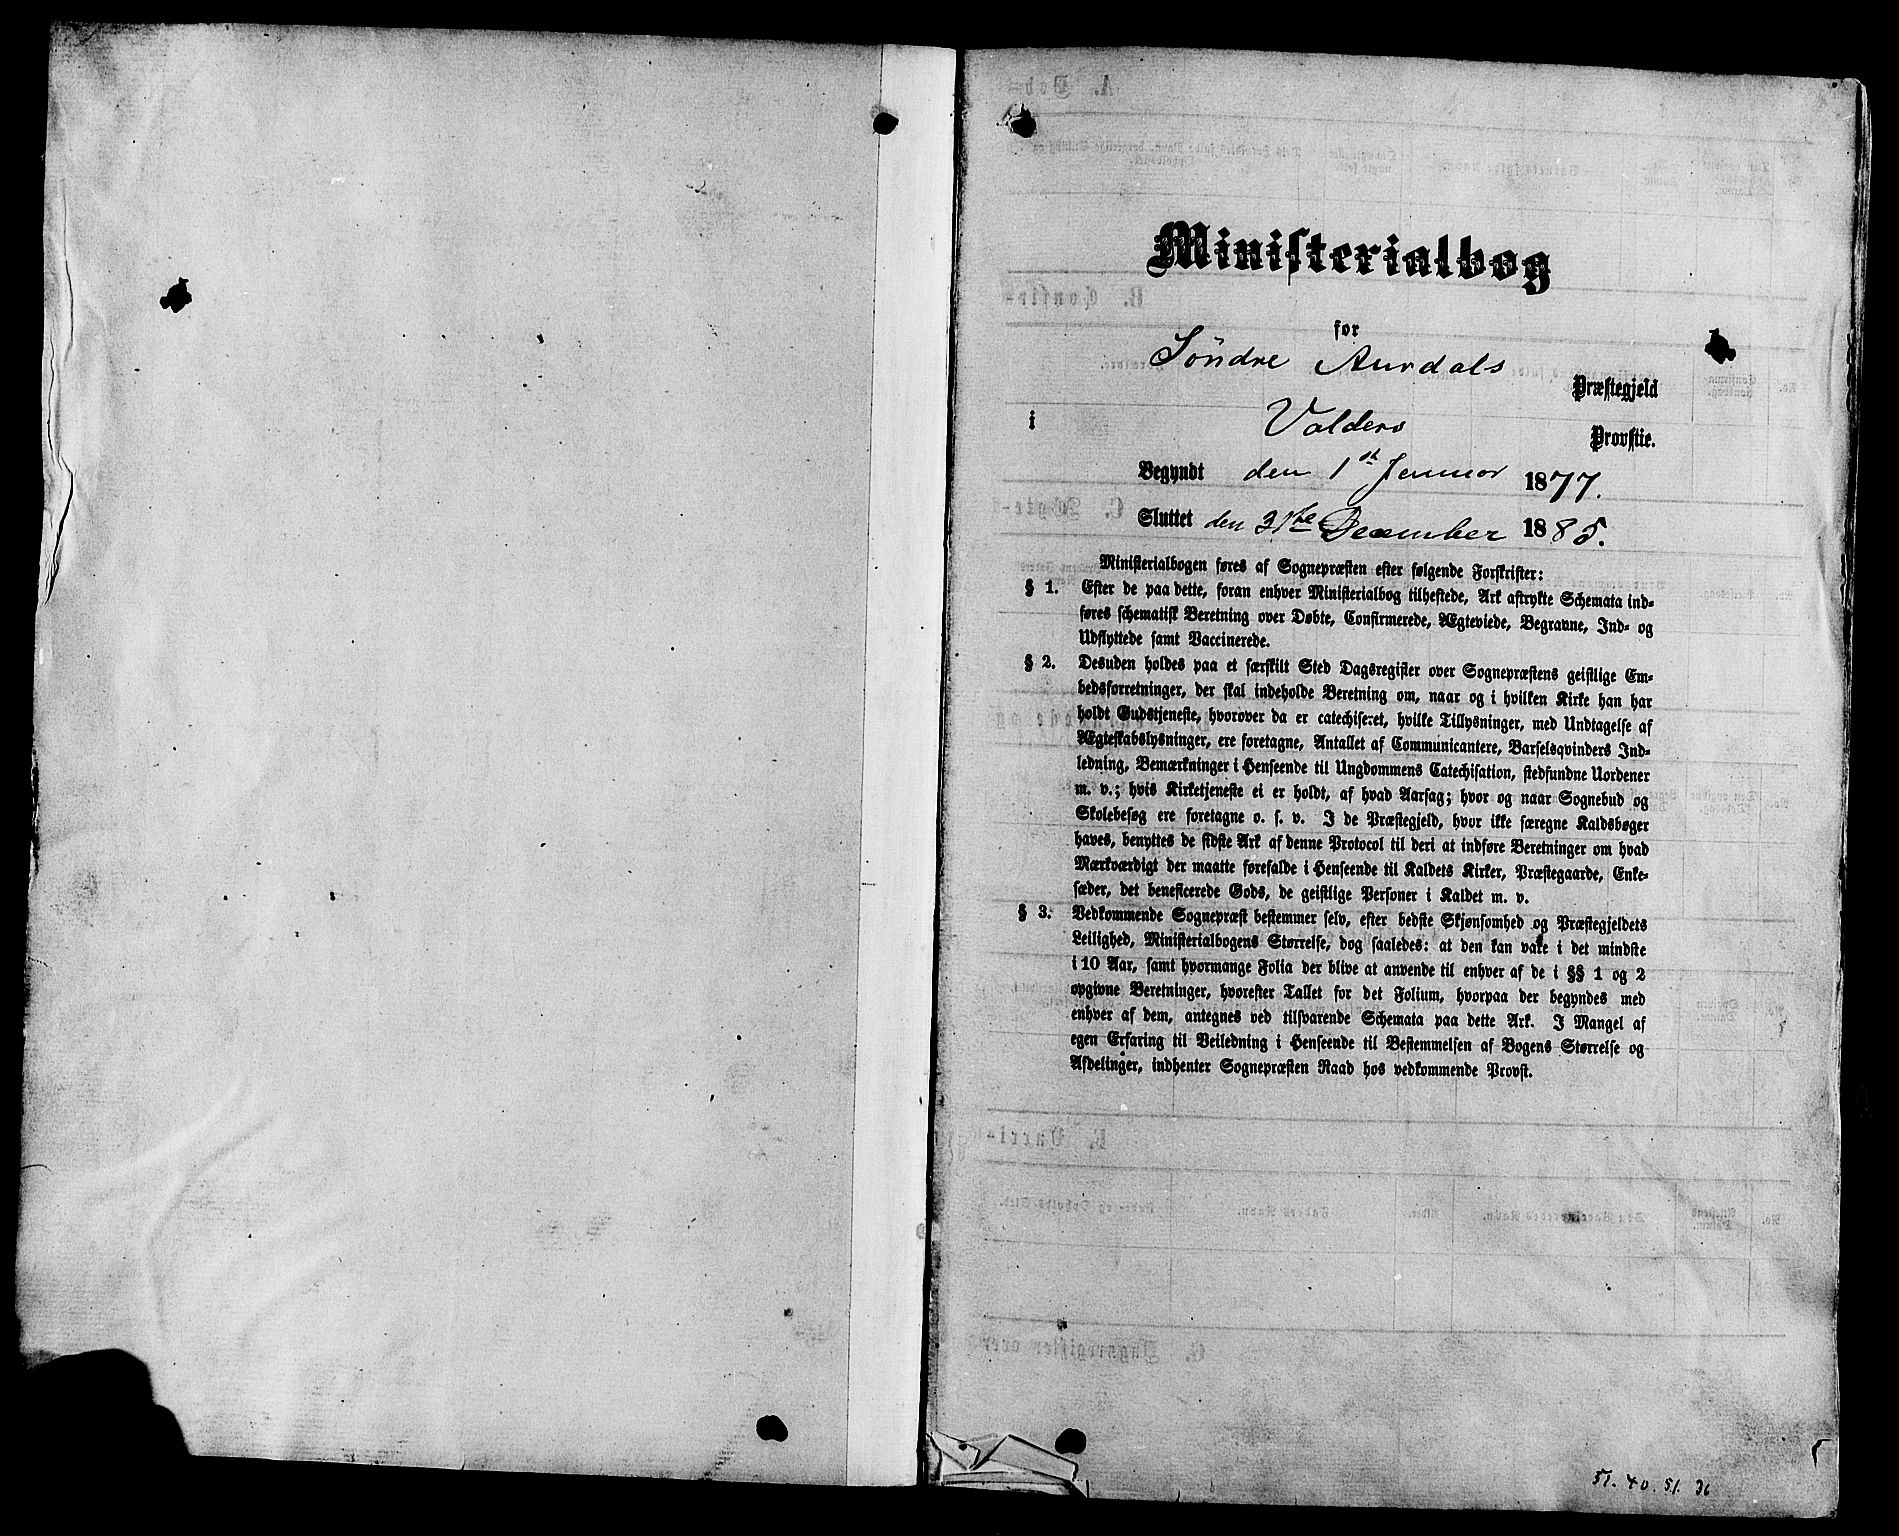 Ministerialbog
for
Söndre Aurdals Præstegjeld
i Valders Provstie.
Begyndt den 1st Januar 1877.
Sluttet den 31te December 1885.
Ministerialbogen føres af Sognepræsten efter følgende Forskrifter:
§ 1. Efter de paa dette, foran enhver Ministerialbog tilheftede, Ark aftrykte Schemata ind-
føres schematisk Beretning over Døbte, Confirmerede, Ægteviede, Begravne, Ind- og
Udflyttede samt Vaccinerede.
§ 2. Desuden holdes paa et særskilt Sted Dagsregister over Sognepræstens geistlige Em-
bedsforretninger, der skal indeholde Beretning om, naar og i hvilken Kirke han har
holdt Gudstjeneste, hvorover da er catechiseret, hvilke Tillysninger, med Undtagelse af
Ægteskabslysninger, ere foretagne, Antallet af Communicantere, Barselqvinders Ind-
ledning, Bemærkninger i Henseende til Ungdommens Catechisation, stedfundne Uordener
m. v.; hvis Kirketjeneste ei er holdt, af hvad Aarsag; hvor og naar Sognebud og
Skolebesøg ere foretagne o. s. v. I de Præstegjeld, hvor ikke særegne Kaldsbøger
haves, benyttes de sidste Ark af denne Protocol til deri at indføre Beretninger om hvad
Mærkværdigt der maatte forefalde i Henseende til Kaldets Kirker, Præstegaarde, Enke-
sæder, det beneficerede Gods, de geistlige Personer i Kaldet m. v.
§ 3. Vedkommende Sognepræst bestemmer selv, efter bedste Skjønsomhed og Præstegjeldets
Leilighed, Ministerialbogens Størrelse, dog saaledes: at den kan vare i det mindste
i 10 Aar, samt hvormange Folia der blive at anvende til enhver af de i §§ 1 og 2
opgivne Beretninger, hvorefter Tallet for det Folium, hvorpaa der begyndes med
enhver af dem, antegnes ved tilsvarende Schemata paa dette Ark. I Mangel af
egen Erfaring til Veiledning i Henseende til Bestemmelsen af Bogens Størrelse og
Afdelinger, indhenter Sognepræsten Raad hos vedkommende Provst.
51. 40. 51. 36